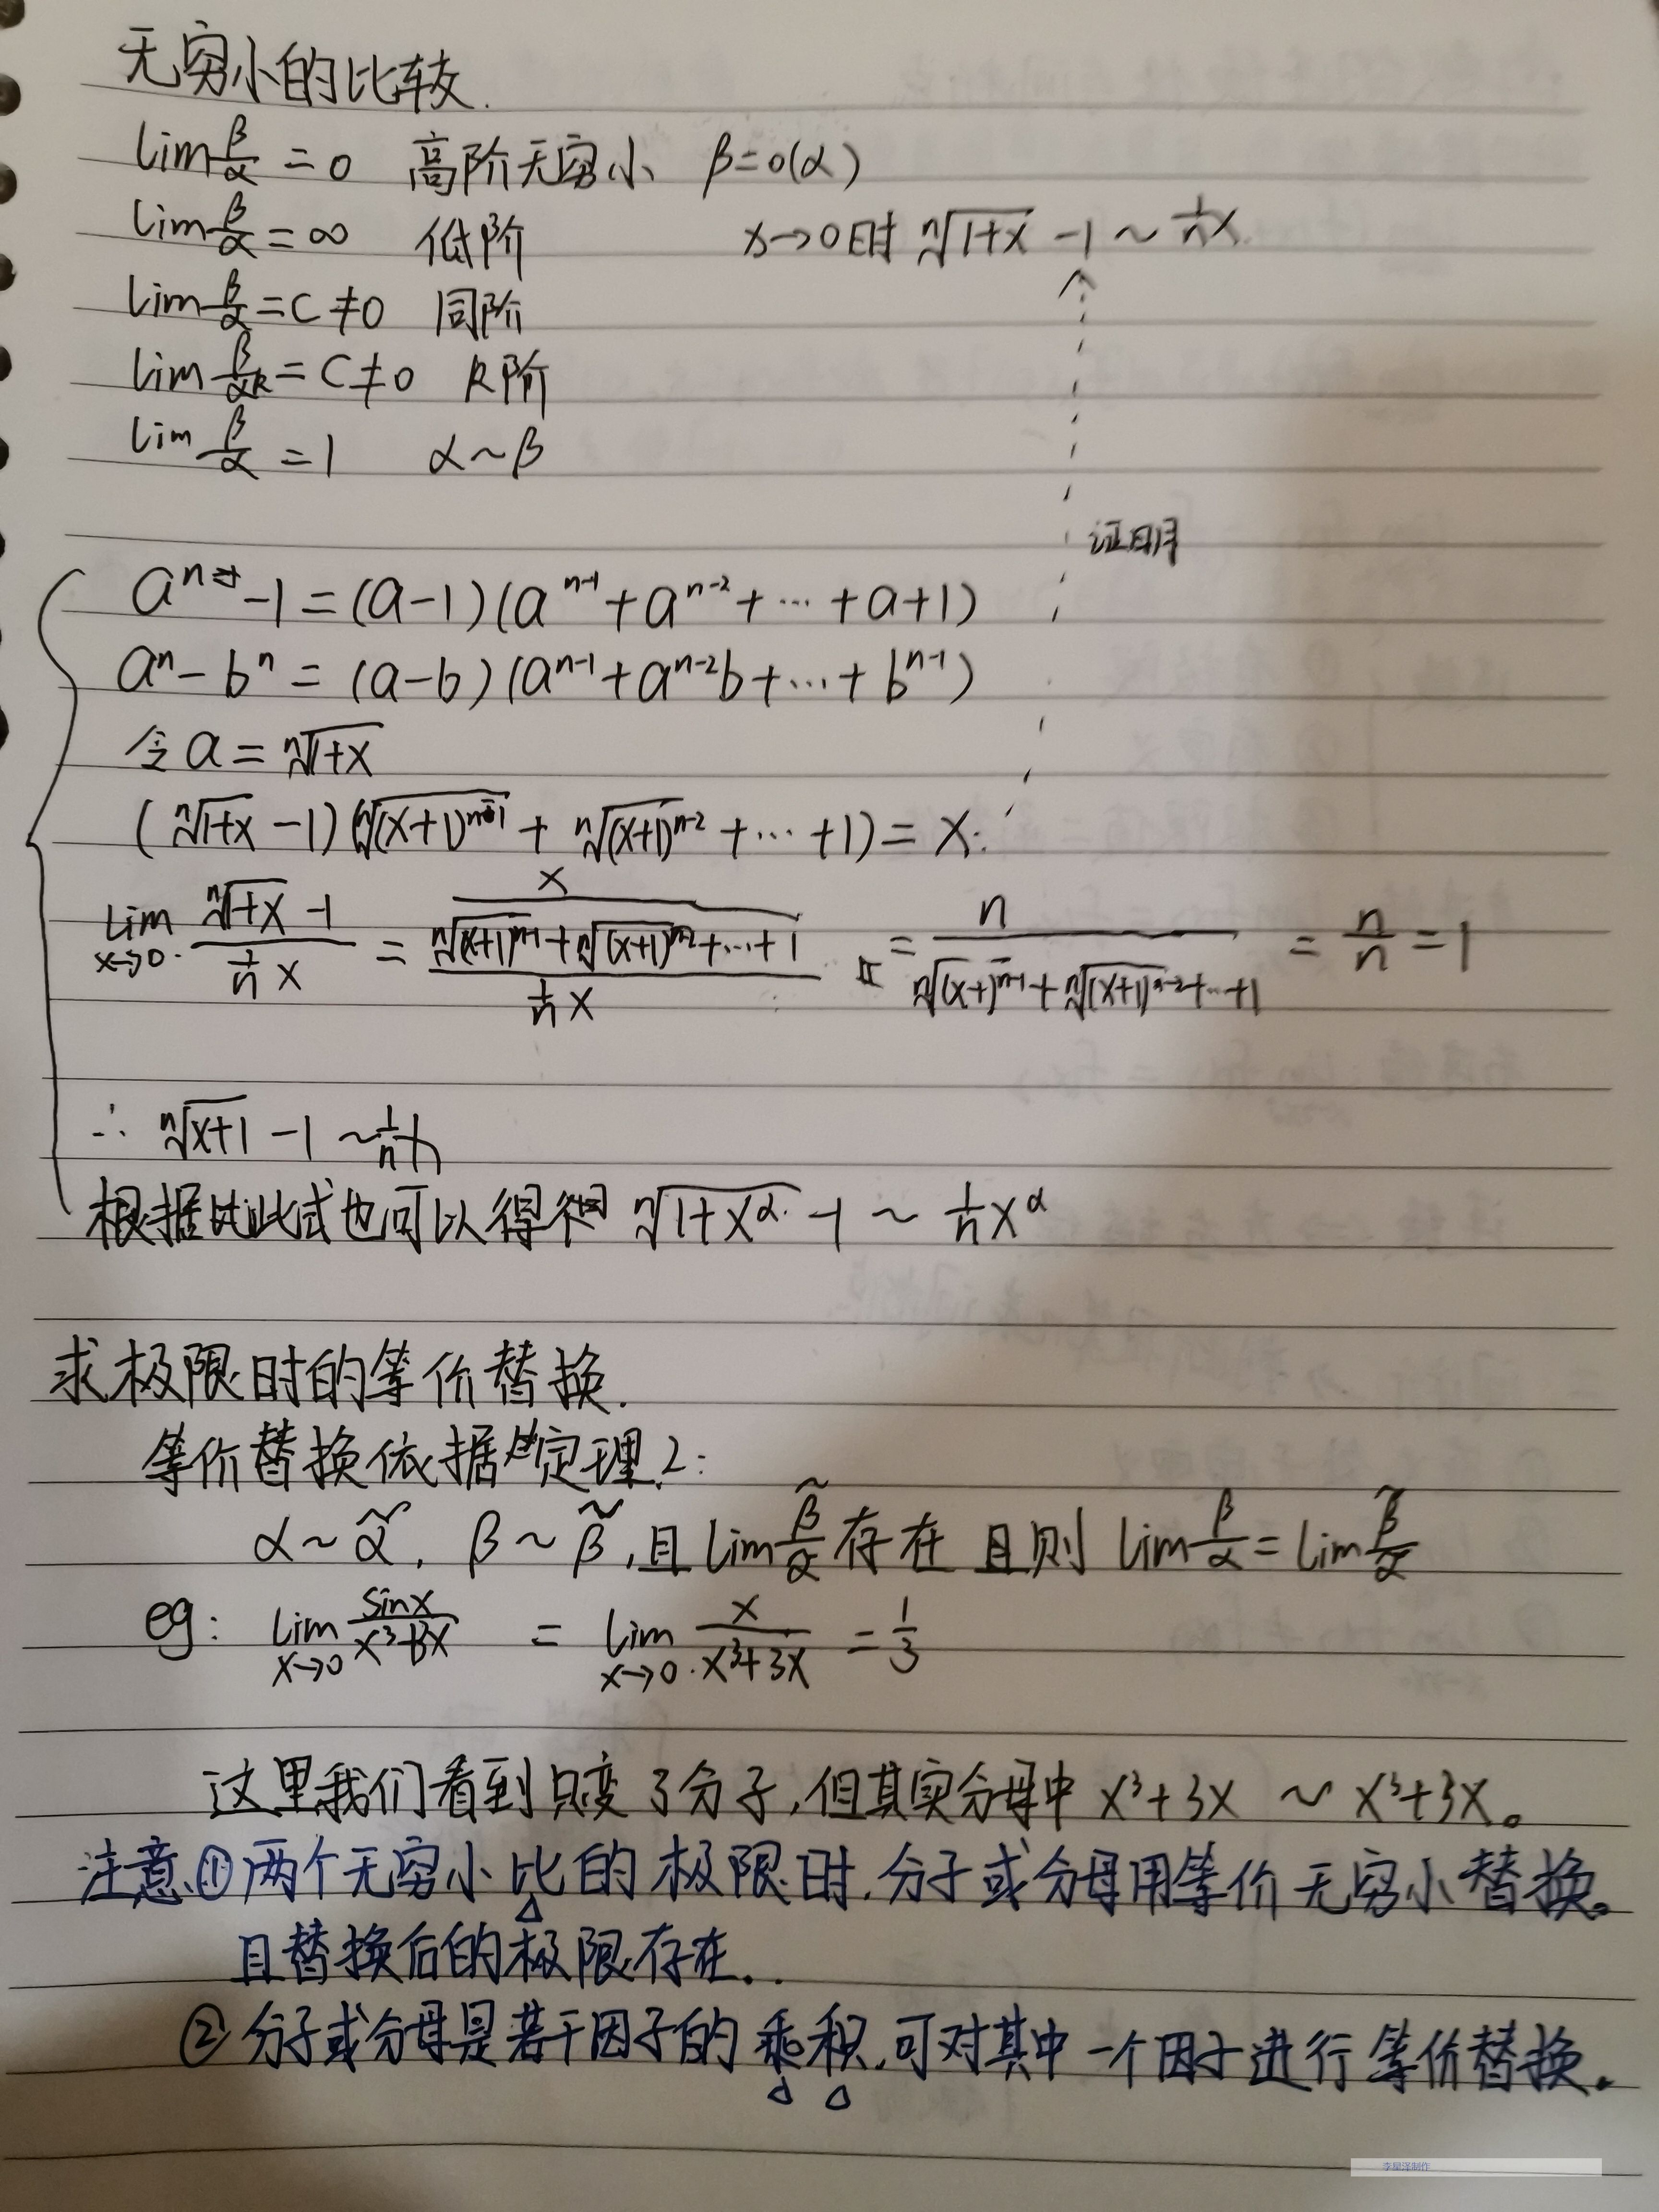 无穷小的比较.
lim β/α = 0 高阶无穷小 β=o(α)
lim β/α = ∞ 低阶
x→0时 ⁿ√(1+x) -1 ~ 1/n x
lim β/α = C ≠ 0 同阶
lim β/αᵏ = C ≠ 0 k阶
lim β/α = 1 α~β
证明
aⁿ -1 = (a-1)(aⁿ⁻¹+aⁿ⁻²+…+a+1)
aⁿ - bⁿ = (a-b)(aⁿ⁻¹+aⁿ⁻²b+…+bⁿ⁻¹)
令 a = ⁿ√(1+x)
(ⁿ√(1+x) -1)(ⁿ√(x+1)ⁿ⁻¹ + ⁿ√(x+1)ⁿ⁻² +…+1) = x
lim x→0 (ⁿ√(1+x) -1)/(1/n x) = (x/(ⁿ√(x+1)ⁿ⁻¹+ⁿ√(x+1)ⁿ⁻²+…+1))/(1/n x) = n/(ⁿ√(x+)ⁿ⁻¹+ⁿ√(x+1)ⁿ⁻²+…+1) = n/n = 1
∴ ⁿ√(x+1) -1 ~ 1/n
根据此式也可以得 ⁿ√(1+xᵅ) -1 ~ 1/n xᵅ
求极限时的等价替换.
等价替换依据定理2:
α~α̃, β~β̃,且 lim β̃/α 存在 且则 lim β/α = lim β̃/α̃
eg: lim x→0 sinx/(x³+3x) = lim x→0 x/(x³+3x) = 1/3
这里我们看到只变了分子,但其实分母中 x³+3x ~ x³+3x。
注意①两个无穷小比的极限时,分子或分母用等价无穷小替换。
且替换后的极限存在..
②分子或分母是若干因子的乘积,可对其中一个因子进行等价替换。
李星泽制作